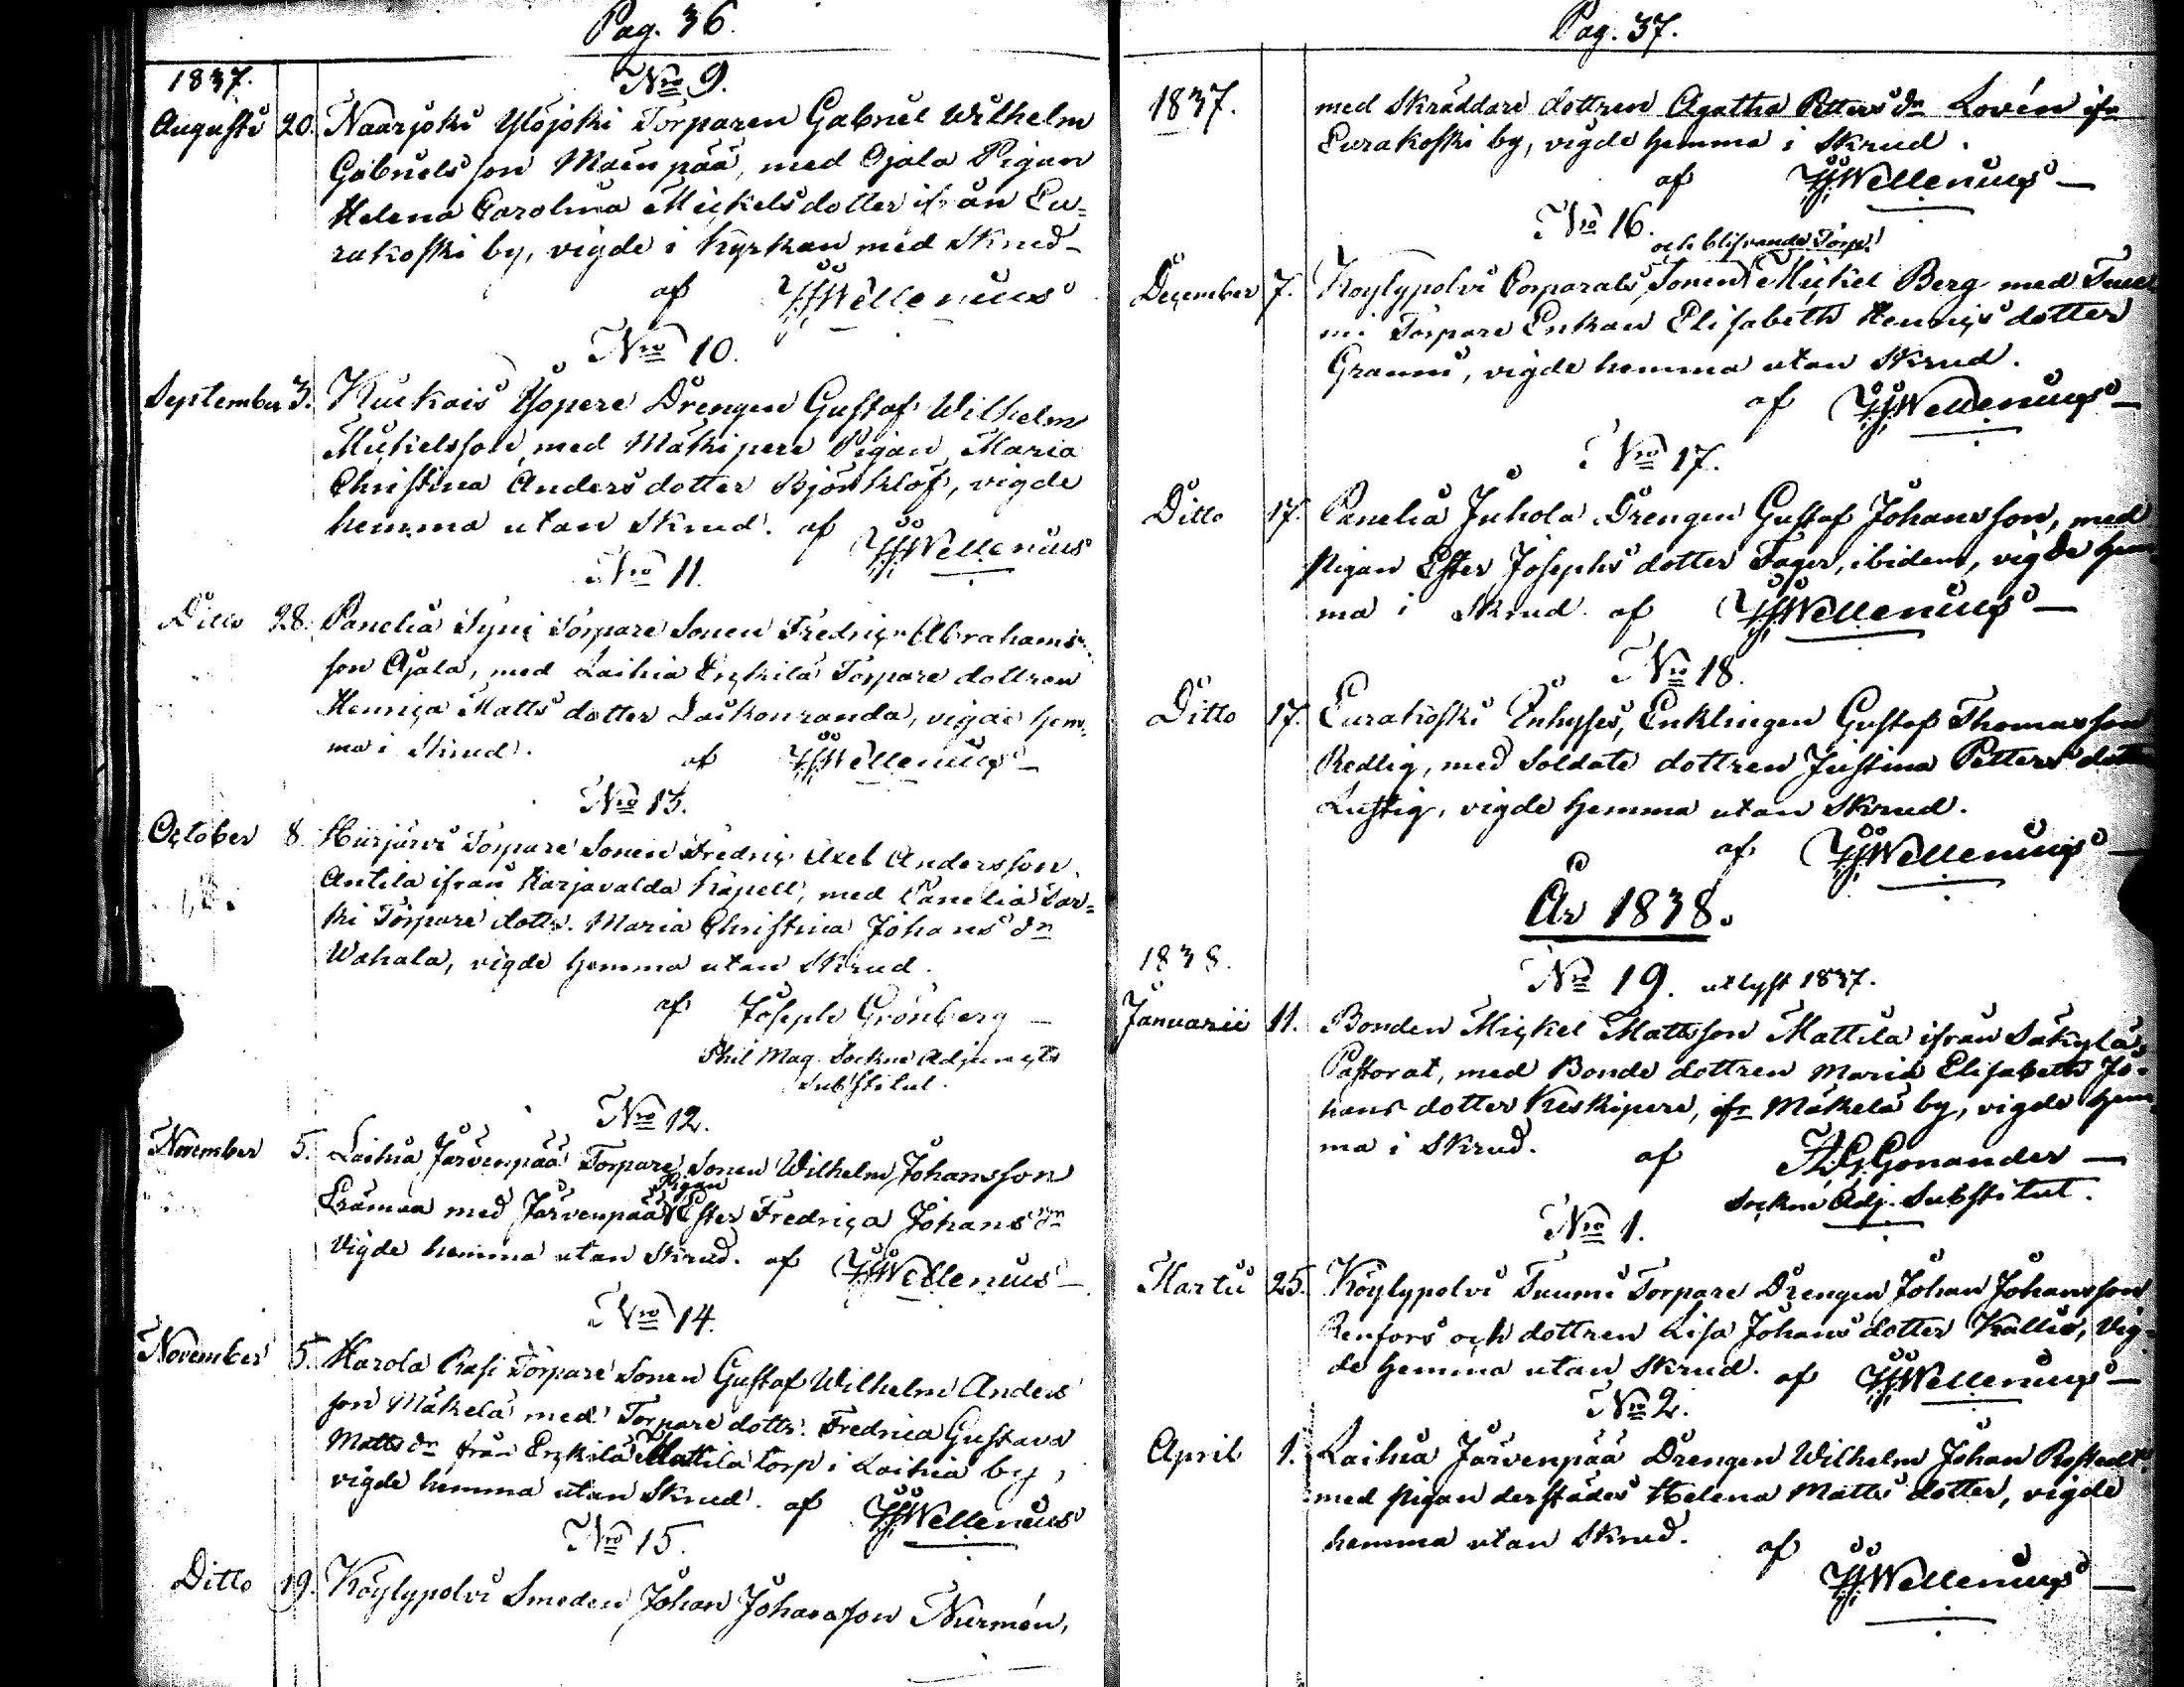 Pag. 36.
1837.
Nro 9.
Augusti 20. Naarjoki Ylöjoki Torparen Gabriel Wilhelm
Gabriels son Mäenpää, med Ojala Pigan
Helena Carolina Mickels dotter ifrån Eu=
rakoski by, vigde i Kyrkan med Skrud
af JHWellenius
Nro 10.
September 3. Kuckais Yöpere Drengen Gustaf Wilhelm
Mickelsson, med Mälkipere Pigan Maria
Christina Anders dotter Björklöf, vigde
hemma utan Skrud. af JHWellenius
Nro 11.
Ditto 28. Panelia Torpare Sonen Fredric Abrahams
son Ojala, med Laihia Erkilä Torpare dottren
Henrica Matts dotter vigde hem
ma i Skrud. af JHWellenius
Nro 13.
October 8. Torpare Sonen Fredric Axel Andersson
Antila ifrån Harjavalda Kapell, med Panelia
ki Torpare dottr. Maria Christina Johans dr
Wahala, vigde hemma utan Skrud.
af Joseph Grönberg
Phil Mag. Sockne Adjuncts
Substitut.
Nro 12.
November 5. Laihia Järvenpää Torpare Sonen Wilhelm Johansson
Pigan
med Järvenpää Ester Fredrica Johans dr
Vigde hemma utan Skrud. af JHWellenius
Nro 14.
November 5. Harola Rasi Torpare Sonen Gustaf Wilhelm Anders
son Mäkelä med Torpare dottr. Fredrica Gustava
Matts dr från Erkilä Mattila torp i Laihia by,
vigde hemma utan Skrud. af JHWellenius
Nro 15.
Ditto 19. Köylypolvi Smeden Johan Johansson Nurmén,
Pag. 37.
1837. med Skräddare dottren Agatha Petters dr Lovén ifr
Eurakoski by, vigde hemma i Skrud.
af JHWellenius
Nro 16.
och blifvande Torp.
December 7. Köylypolvi Corporals Sonen Mickel Berg med
mi Torpare Enkan Elisabeth Henrics dotter
vigde hemma utan Skrud.
af JHWellenius
Nro 17.
Ditto 17. Panelia Juhola Drengen Gustaf Johansson, med
Pigan Ester Josephs dotter Fager, ibidem, vigde hem
ma i Skrud. af JHWellenius
Nro 18.
Ditto 17. Eurakoski Inhyses, Enklingen Gustaf Thomasson
Redlig, med Soldate dottren Justina Petters dotter
Lustig, vigde hemma utan Skrud.
af JHWellenius
År 1838.
1838.
Nro 19. utlyst 1837.
Januarii 11. Bonden Mickel Mattsson Mattila ifrån Säkylä
Pastorat, med Bonde dottren Maria Elisabeth Jo=
hans dotter Keskipere, ifr Mäkelä by, vigde hem
ma i Skrud. af Gonander
Sockne Adj. Substitut.
Nro 1.
Martii 25. Köylypolvi Tuumi Torpare Drengen Johan Johansson
Renfors och dottren Lisa Johans dotter Kallio, vig=
de hemma utan Skrud. af JHWellenius
Nro 2.
April 1. Laihia Järvenpää Drengen Wilhelm Johan Rostedt
med pigan derstädes Helena Matts dotter, vigde
hemma utan Skrud. af
JHWellenius